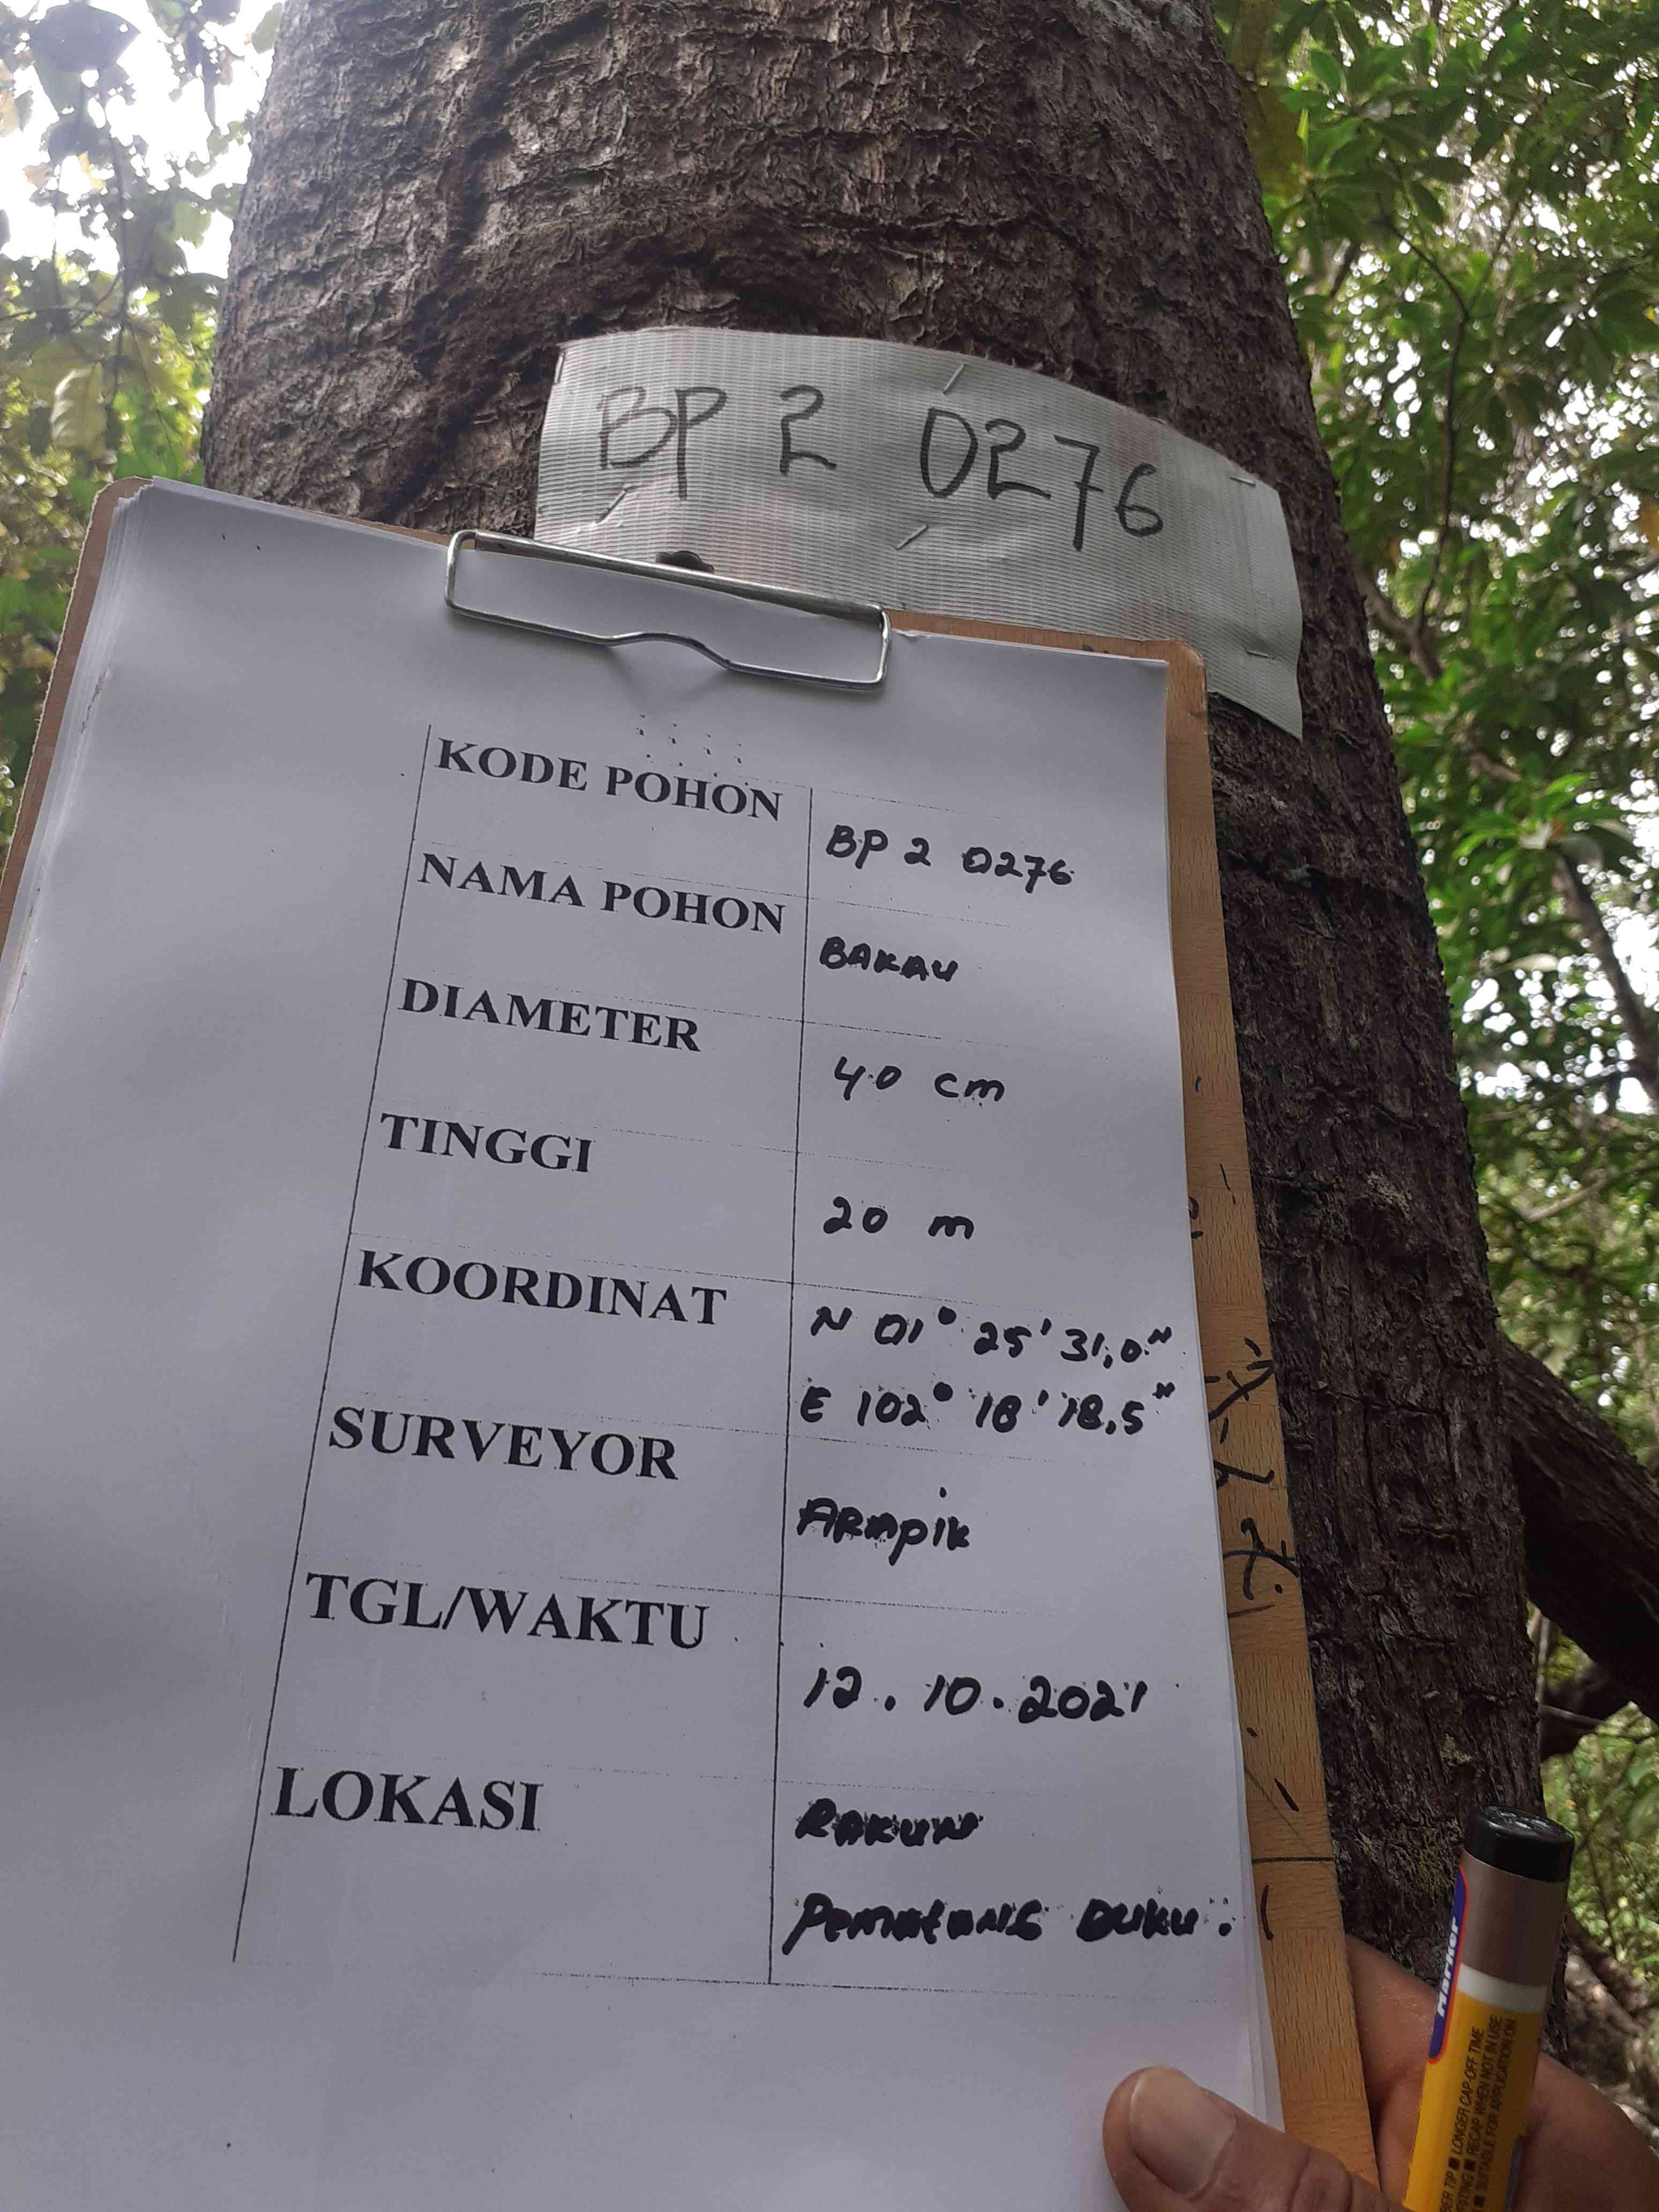 BP 2 0276
KODE POHON BP 2 0276
NAMA POHON BAKAU
DIAMETER 40 cm
TINGGI 20 m
KOORDINAT N 01° 25' 31,0"
E 102° 18' 18.5"
SURVEYOR ARMPIK
TGL/WAKTU 12.10.2021
LOKASI RAKUN
PEMATANG DUKU
Marker
LONGER CAP-OFF TIME
RECAP WHEN NOT IN USE
SUITABLE FOR APPLICATION ON